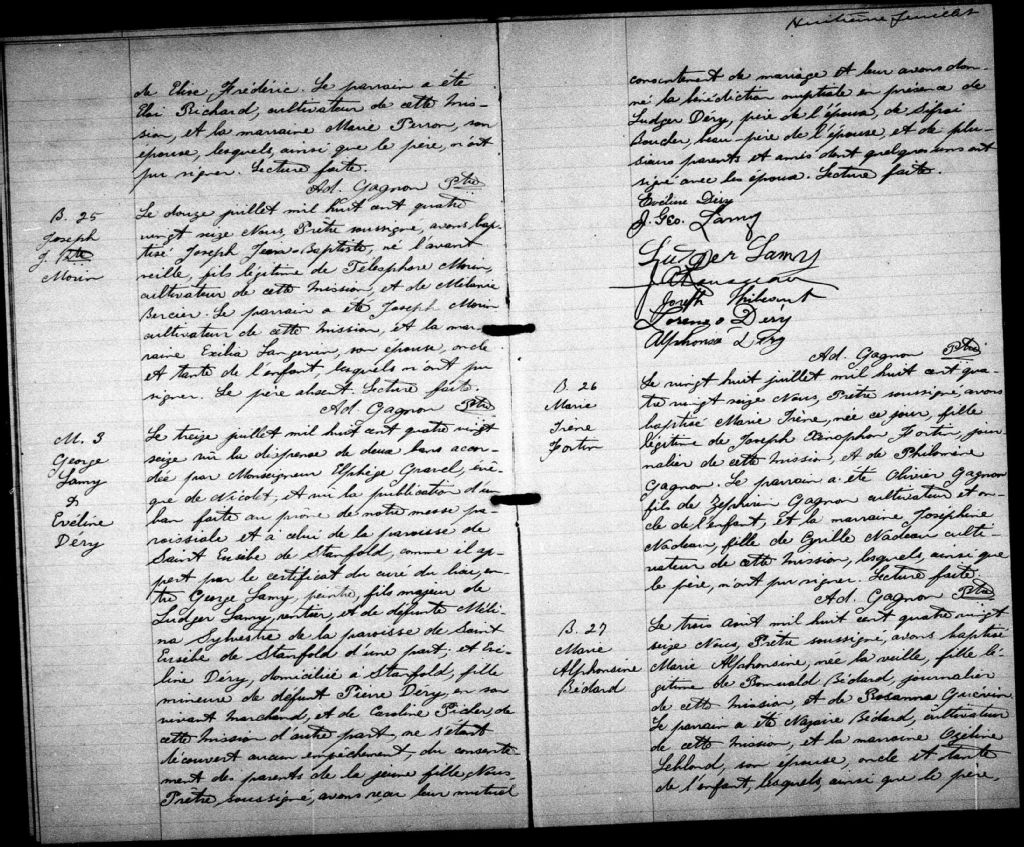 de Elise Frédéric. Le parrain a été
Eloi Richard, cultivateur de cette mis-
sion, et la marraine Marie Perron, son
épouse, lesquels, ainsi que le père, n'ont
pu signer. Lecture faite.
Ad. Gagnon Ptre
B. 25
Joseph
J. Bte
Morin
Le douze juillet mil huit cent quatre
vingt seize Nous, Prêtre soussigné, avons bap-
tisé Joseph Jean-Baptiste, né l'avant
veille, fils légitime de Télesphore Morin,
cultivateur de cette mission, et de Mélanie
Bercier. Le parrain a été Joseph Morin
cultivateur de cette mission, et la mar-
raine Exilia Langevin, son épouse, oncle
et tante de l'enfant, lesquels n'ont pu
signer. Le père absent. Lecture faite.
Ad. Gagnon Ptre
M. 3
George
Lamy
&
Evéline
Déry
Le treize juillet mil huit cent quatre vingt
seize vu la dispense de deux bans accor-
dée par Monseigneur Elphège Gravel, évê-
que de Nicolet, et vu la publication d'un
ban faite au prône de notre messe pa-
roissiale et à celui de la paroisse de
Saint Eusèbe de Stanfold, comme il ap-
pert par le certificat du curé du lieu, en-
tre George Lamy, peintre, fils majeur de
Ludger Lamy, rentier, et de défunte Méli-
na Sylvestre de la paroisse de Saint
Eusèbe de Stanfold d'une part, et Evé-
line Déry, domiciliée à Stanfold, fille
mineure de défunt Pierre Déry, en son
vivant marchand, et de Caroline Picher de
cette mission d'autre part, ne s'étant
découvert aucun empêchement, du consente-
ment des parents de la jeune fille, Nous,
Prêtre soussigné, avons reçu leur mutuel
Huitième feuillet
consentement de mariage et leur avons don-
né la bénédiction nuptiale en présence de
Ludger Déry, père de l'époux, de Sifroi
Boucler, beau père de l'épouse, et de plu-
sieurs parents et amis dont quelques uns ont
signé avec les époux. Lecture faite.
Evéline Déry
J. Geo. Lamy
Ludger Lamy
Joseph Thibeault
Lorenzo Déry
Alphonse Déry
Ad. Gagnon Ptre
B. 26
Marie
Irène
Fortin
Le vingt huit juillet mil huit cent qua-
tre vingt seize Nous, Prêtre soussigné, avons
baptisé Marie Irène, née ce jour, fille
légitime de Joseph Xénophon Fortin, jour-
nalier de cette mission, et de Philomène
Gagnon. Le parrain a été Olivier Gagnon
fils de Zéphirin Gagnon cultivateur et on-
cle de l'enfant, et la marraine Joséphine
Nadeau, fille de Cyrille Nadeau culti-
vateur de cette mission, lesquels ainsi que
le père, n'ont pu signer. Lecture faite.
Ad. Gagnon Ptre
B. 27
Marie
Alphonsine
Bédard
Le trois août mil huit cent quatre vingt
seize Nous, Prêtre soussigné, avons baptisé
Marie Alphonsine, née la veille, fille lé-
gitime de Romuald Bédard, journalier
de cette mission, et de Rosanna Guévin
Le parrain a été Nazaire Bédard, cultivateur
de cette mission, et la marraine Ozéline
Leblond, son épouse, oncle et tante
de l'enfant, lesquels, ainsi que le père,